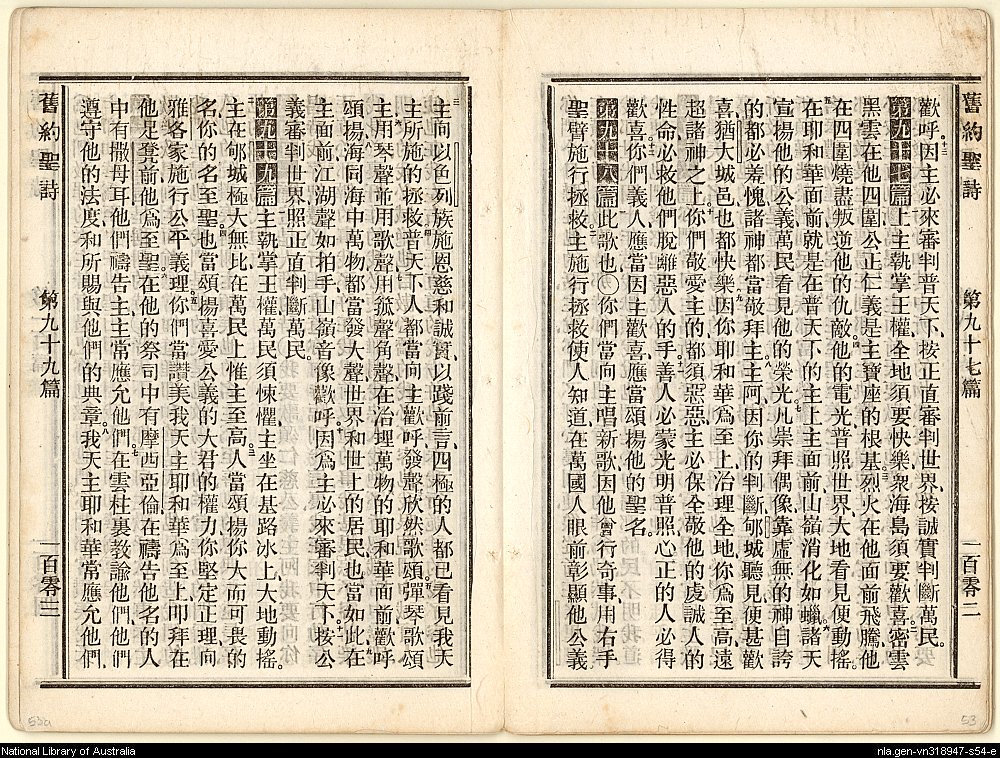 舊約聖詩
第九十七篇
一百零二
歡呼因主必來審判普天下、按正直審判世界、按誠實判斷萬民。
第九十七篇 上主執掌王權、全地須要快樂、衆海島須要歡喜。密雲
黑雲在他四圍、公正仁義是主寶座的根基。烈火在他面前飛騰、他
在四圍燒盡叛逆他的仇敵。他的電光普照世界、大地看見便動搖。
在耶和華面前、就是在普天下的主上主面前、山嶺消化如蠟。諸天
宣揚他的公義、萬民看見他的榮光。凡崇拜偶像、靠虛無的神自誇
的、都必羞愧、諸神都當敬拜主。主阿、因你的判斷、郇城聽見便甚歡
喜、猶大城邑也都快樂。因你耶和華爲至上、治理全地、你爲至高、遠
超諸神之上。你們敬愛主的、都須惡惡、主必保全敬他的虔誠人的
性命、必救他們脫離惡人的手。善人必蒙光明普照、心正的人必得
歡喜。你們義人應當因主歡喜、應當頌揚他的聖名。
第九十八篇 此歌也〇你們當向主唱新歌、因他曾行奇事、用右手
聖臂施行拯救。主施行拯救、使人知道、在萬國人眼前彰顯他公義
主向以色列族施恩慈和誠實、以踐前言、四極的人都已看見我天
主所施的拯救。普天下人都當向主歡呼、發聲欣然歌頌。彈琴歌頌
主、用琴聲並用歌聲、用箛聲角聲、在治理萬物的耶和華面前歡呼
頌揚。海同海中萬物都當發大聲、世界和世上的居民也當如此。在
主面前江湖聲如拍手、山嶺音像歡呼。因爲主必來審判天下、按公
義審判世界、照正直判斷萬民。
第九十九篇 主執掌王權、萬民須悚懼、主坐在基路冰上、大地動搖。
主在郇城極大無比、在萬民上惟主至高。人當頌揚你大而可畏的
名、你的名至聖也。當頌揚喜愛公義的大君的權力、你堅定正理、向
雅各家施行公平義理。你們當讚美我天主耶和華爲至上、叩拜在
他足凳前、他爲至聖。在他的祭司中有摩西亞倫、在禱告他名的人
中有撒母耳、他們禱告主、主常應允他們。在雲柱裏敎諭他們、他們
遵守他的法度、和所賜與他們的典章。我天主耶和華常應允他們、
舊約聖詩
第九十九篇
一百零三
53a
53
National Library of Australia
nla.gen-vn318947-s54-e